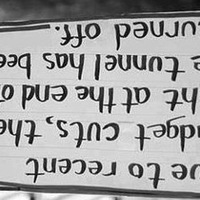 ue to recent
dget cuts, the
ht at the end o
e tunnel has bee
urned off.